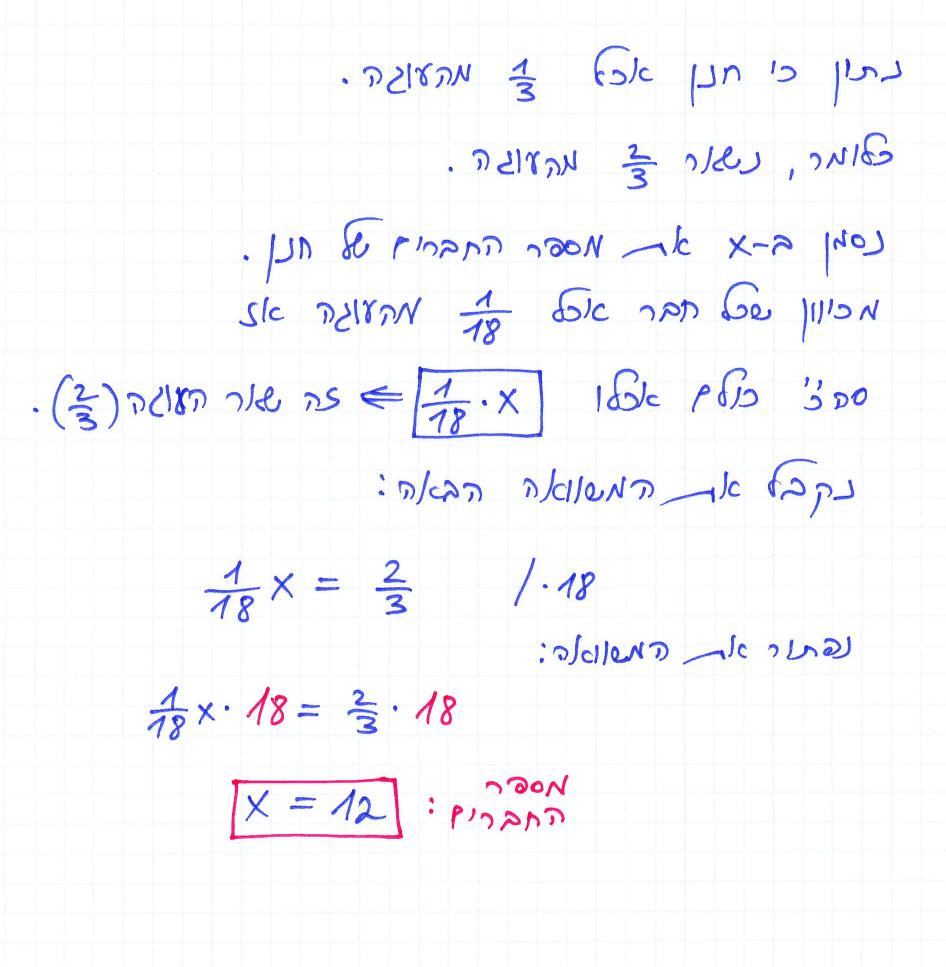 נתון כי חנן אכל 1/3 מהעוגה.
כלומר, נשאר 2/3 מהעוגה.
נסמן ב-x את מספר החברים של חנן.
מכיוון שכל חבר אכל 1/18 מהעוגה אז
סה"כ כולם אכלו 1/18 · x ⇐ זה שאר העוגה (2/3).
נקבל את המשוואה הבאה:
1/18 x = 2/3 /·18
נפתור את המשוואה:
1/18 x · 18 = 2/3 · 18
x = 12 : מספר החברים